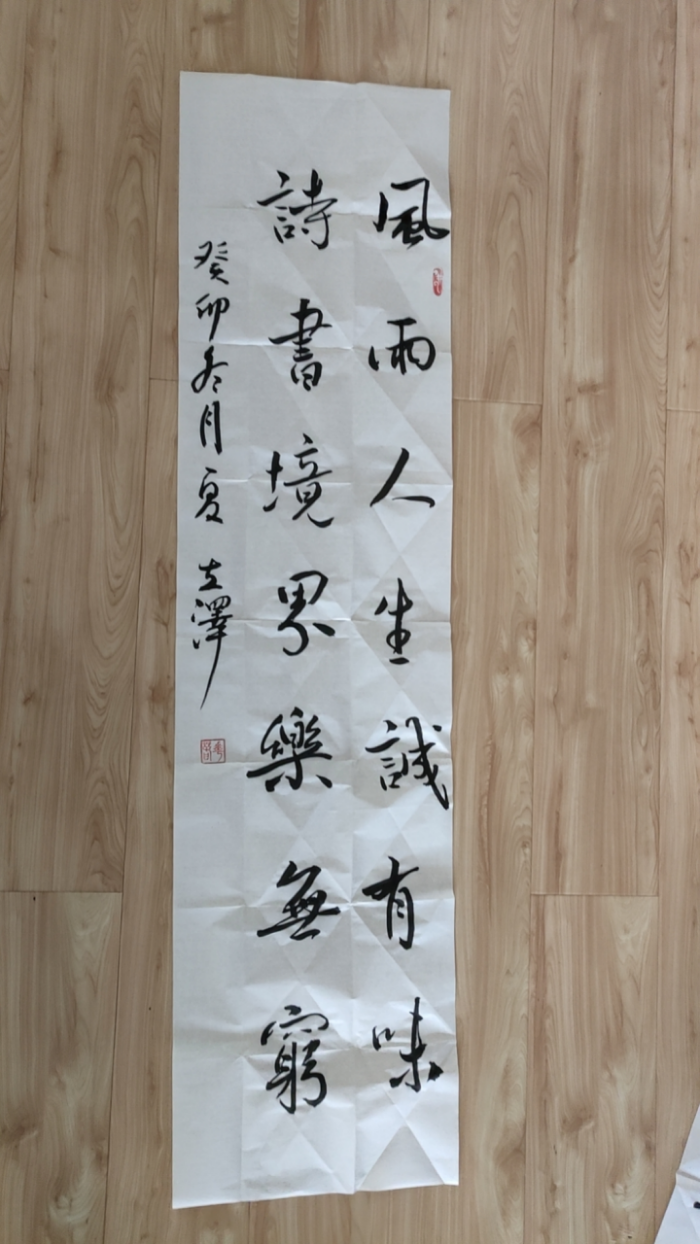 風雨人生誠有味
詩書境界樂無窮
癸卯冬月夏立澤